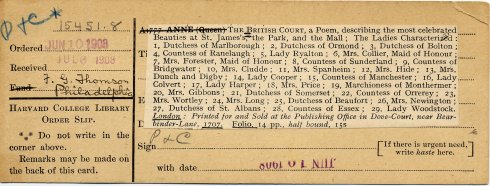 P & C *
15451.8
Ordered JUN 10 1908
Received JUL 8 1908
F. G. Thomson
Fund Philadelphia
HARVARD COLLEGE LIBRARY
ORDER SLIP.
Do not write in the
corner above.
Remarks may be made
on the back of this card.
A 1777 ANNE (Queen) THE BRITISH COURT, a Poem, describing the most celebrated
Beauties at St. James's, the Park, and the Mall; The Ladies Characteriz'd
1, Dutchess of Marlborough; 2, Dutchess of Ormond; 3, Dutchess of Bolton
T 4, Countess of Ranelaugh; 5, Lady Ryalton; 6, Mrs. Collier, Maid of Honour
7, Mrs. Forester, Maid of Honour; 8, Countess of Sunderland; 9, Countess of
Bridgwater; 10, Mrs. Cindde; 11, Mrs. Spanheim; 12, Mrs. Hide; 13, Mrs.
Dunch and Digby; 14, Lady Cooper; 15, Countess of Manchester; 16, Lady
Colvert; 17, Lady Harper; 18, Mrs. Price; 19, Marchioness of Monthermer;
20, Mrs. Gibbons; 21, Dutchess of Somerset; 22, Countess of Orrerey; 23,
E Mrs. Wortley; 24, Mrs. Long; 25, Dutchess of Beaufort; 26, Mrs. Newington
27, Dutchess of St. Albans; 28, Countess of Essex; 29, Lady Woodstock.
London: Printed for and Sold at the Publishing Office in Dove-Court, near Bear-
D binder-Lane, 1707. Folio, 14 pp. half bound, 15s
P & C
Sign
[If there is urgent need,
write haste here.]
with date JUN 10 1908